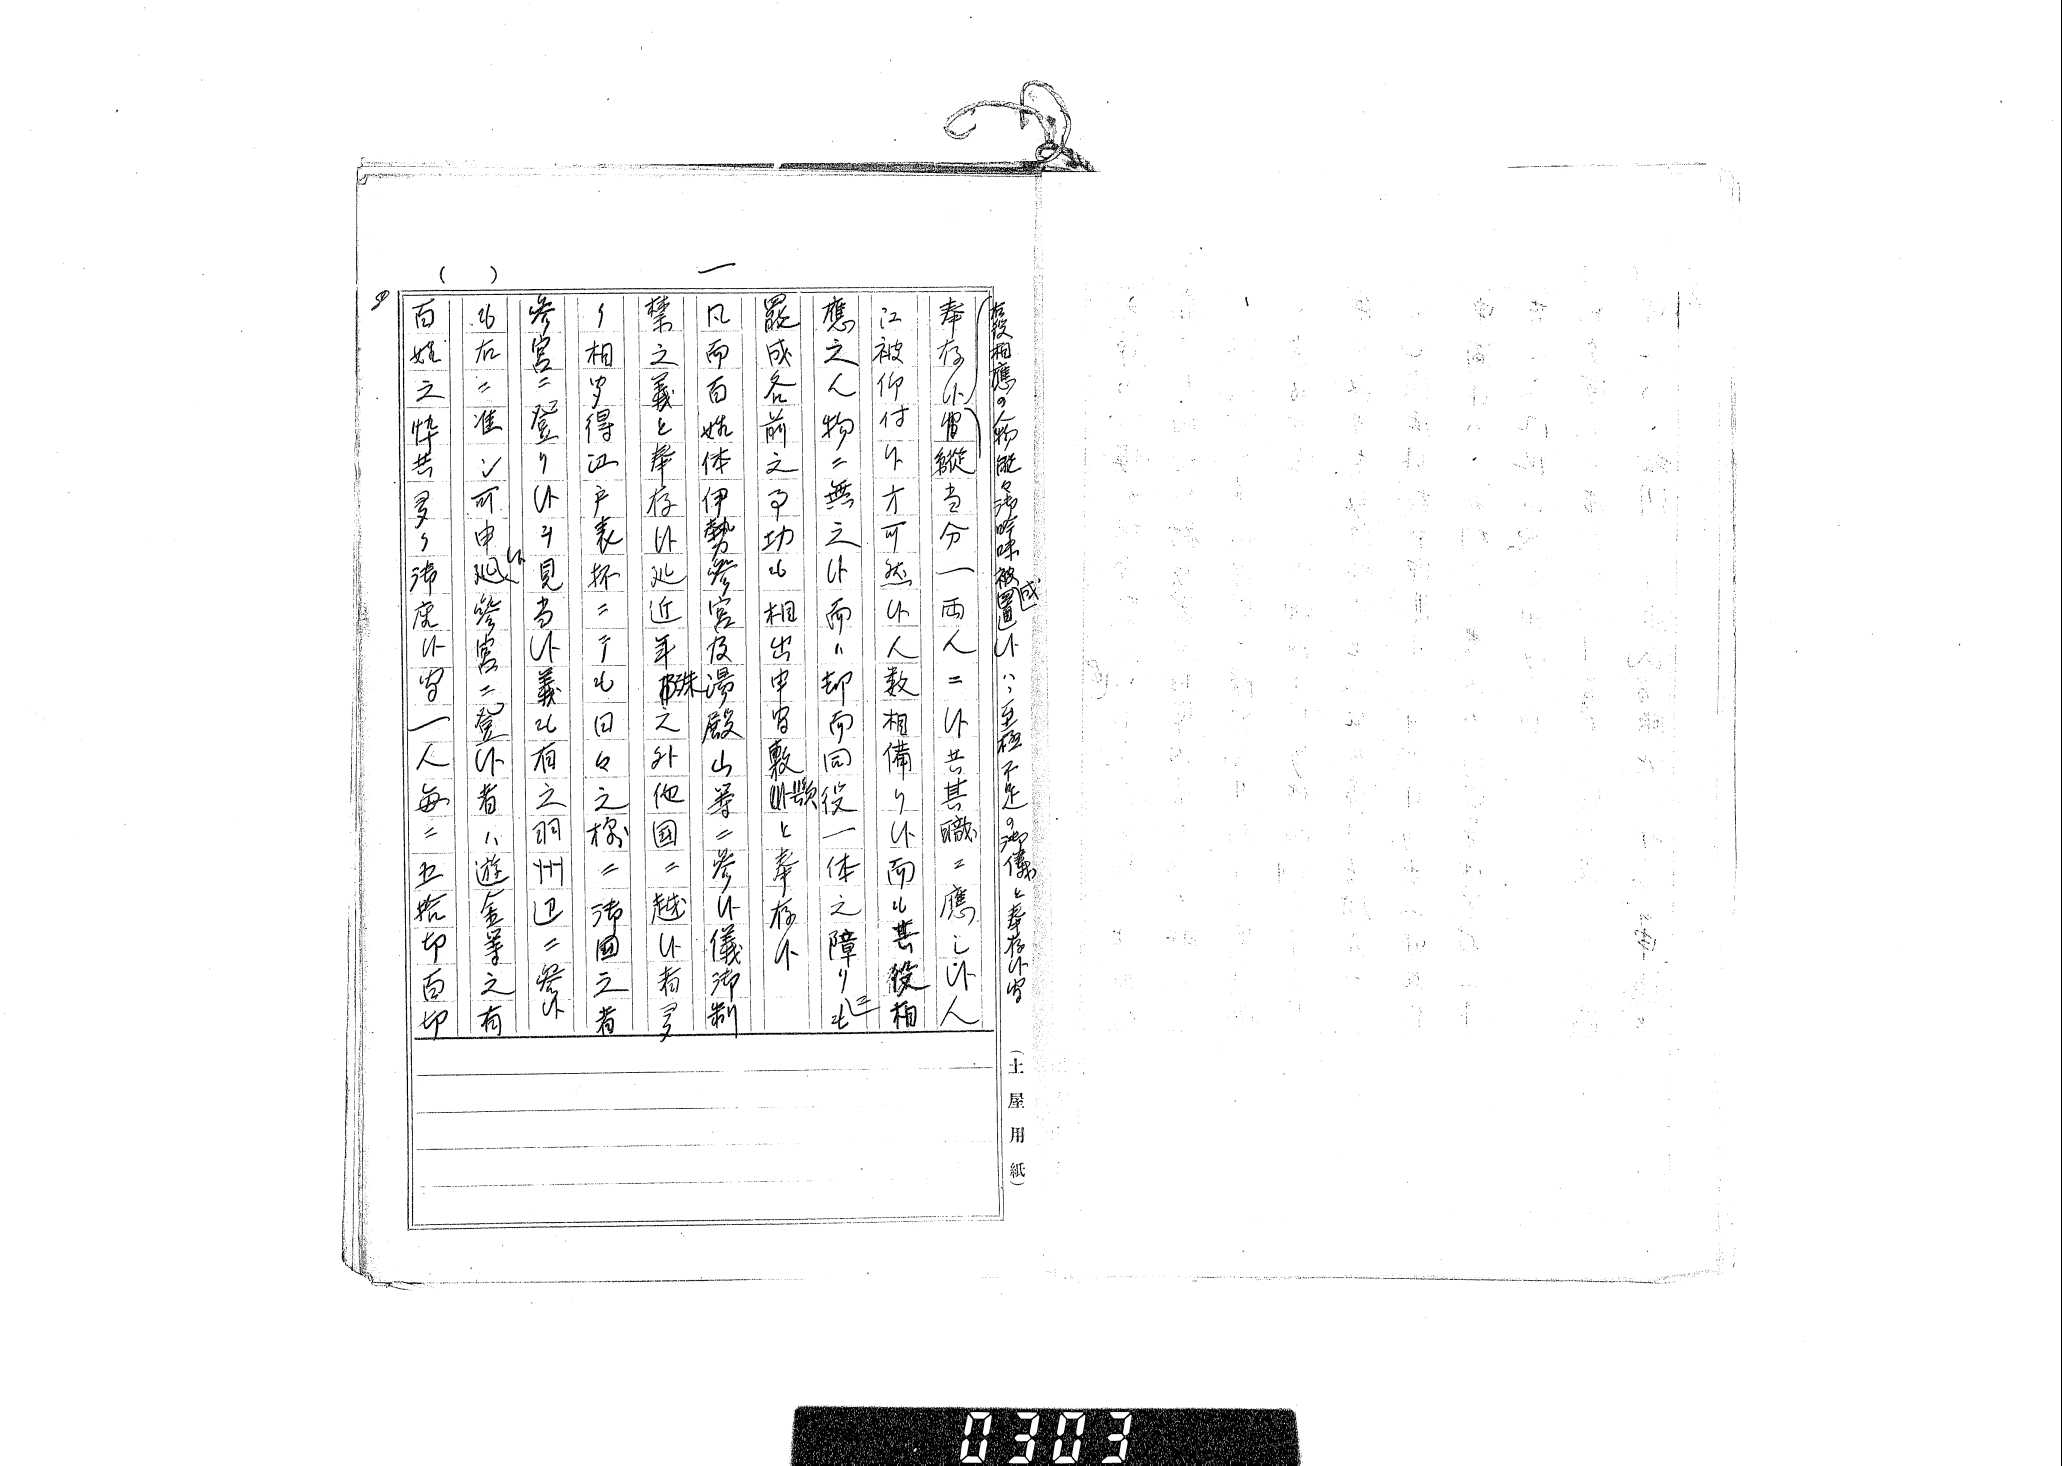 右役相應の人物能々御吟味被成置候ハヽ至極不足の御儀と奉存候間
奉存候間縦当分一両人ニ候共其職ニ應し候人
江被仰付候方可然候人数相備り候而も其役相
應之人物ニ無之候而ハ却而同役一体之障りニも
罷成各前之事功も相出申間敷候と奉存候
一
凡而百姓体伊勢參宮及湯殿山等ニ參候儀御制
禁之義と奉存候処近年殊之外他国ニ越候者多
く相聞得江戸表杯ニ而も日々之様ニ御國之者
參宮ニ登り候を見当候義も有之羽州辺ニ參候
も右ニ准シ可申候処參宮ニ登候者ハ遊金等之有
百姓之忰共多く御座候間一人毎ニ五拾切百切
( )
(土屋用紙)
0303